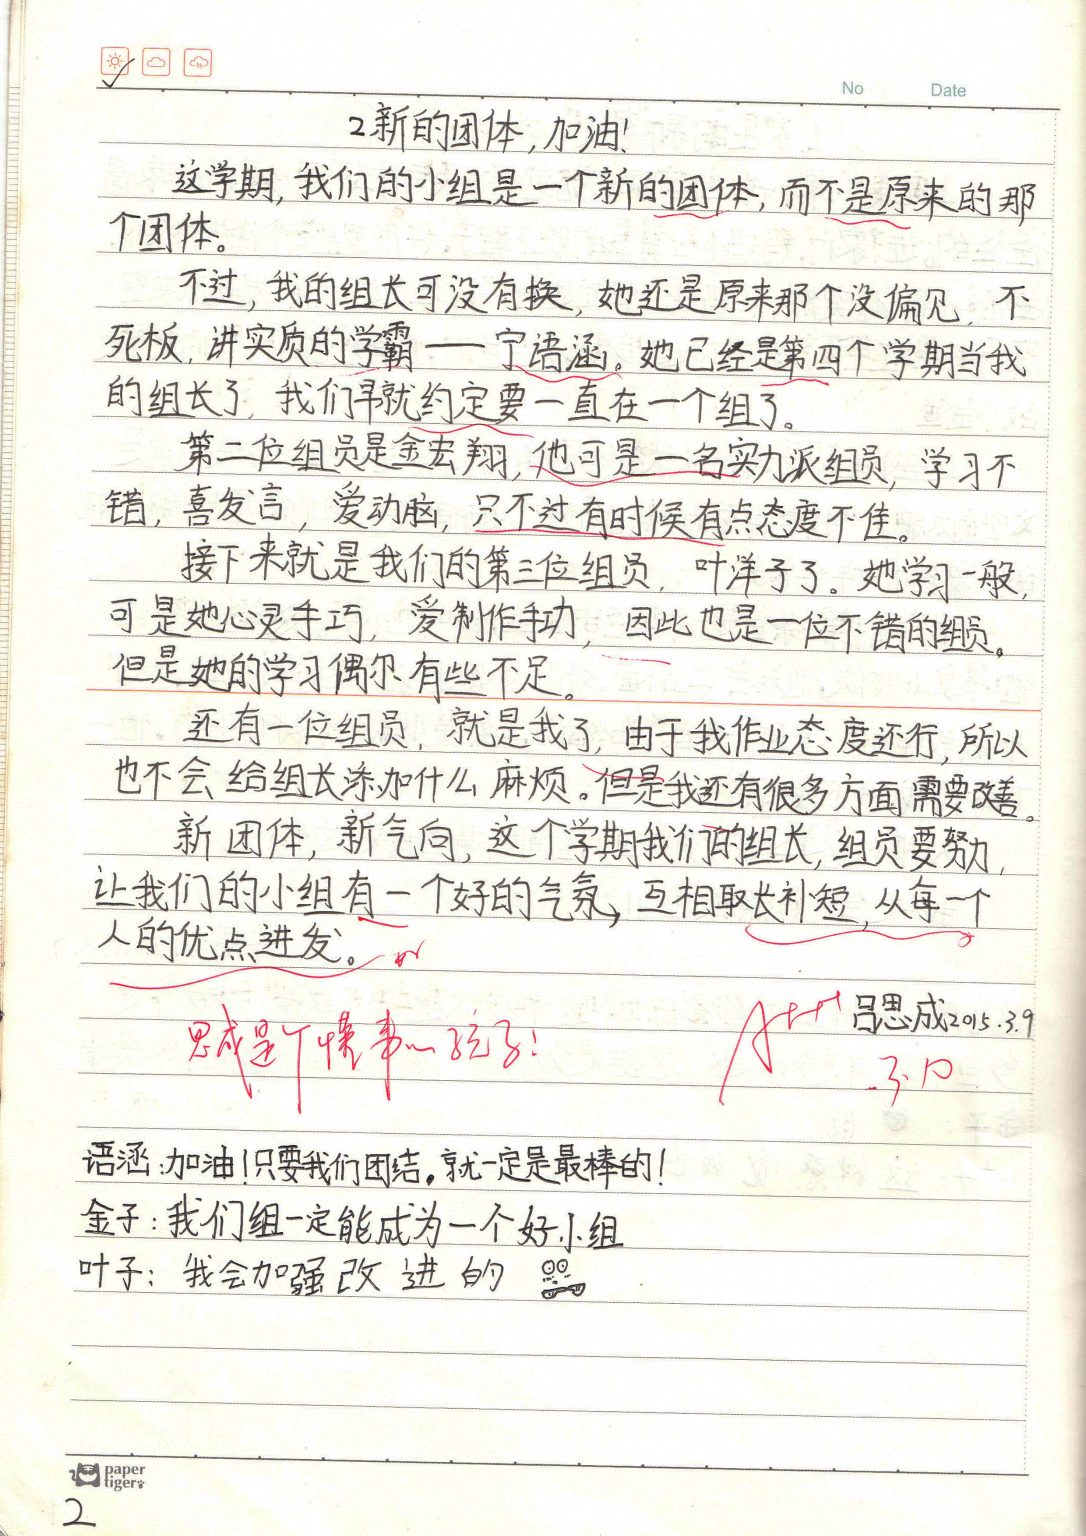 No Date
2新的团体,加油!
这学期,我们的小组是一个新的团体,而不是原来的那
个团体。
不过,我的组长可没有换,她还是原来那个没偏见,不
死板,讲实质的学霸——宁语涵。她已经是第四个学期当我
的组长了,我们早就约定要一直在一个组了。
第二位组员是金宏翔,他可是一名实力派组员,学习不
错,喜发言,爱动脑,只不过有时候有点态度不佳。
接下来就是我们的第三位组员,叶洋子了。她学习一般,
可是她心灵手巧,爱制作手功,因此也是一位不错的组员。
但是她的学习偶尔有些不足。
还有一位组员,就是我了,由于我作业态度还行,所以
也不会给组长添加什么麻烦。但是我还有很多方面需要改善。
新团体,新气向,这个学期我们的组长,组员要努力,
让我们的小组有一个好的气氛,互相取长补短,从每一个
人的优点进发。
吕思成2015.3.9
A+++
思成是个懂事的孩子!
3.10
语涵:加油!只要我们团结。就一定是最棒的!
金子:我们组一定能成为一个好小组
叶子:我会加强改进的
paper
tiger
2